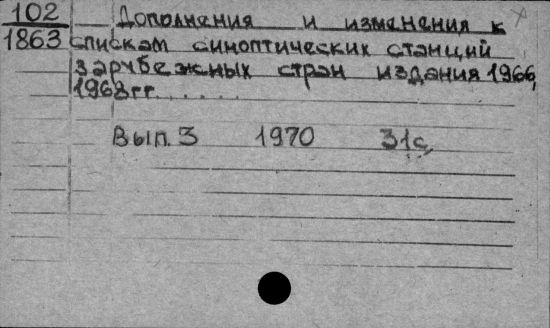 102 Дополнения и изменения к
1863 спискам синоптических станций
зарубежных стран издания 1966,
1968 гг. . . . .
Вып. 3 1970 31с.